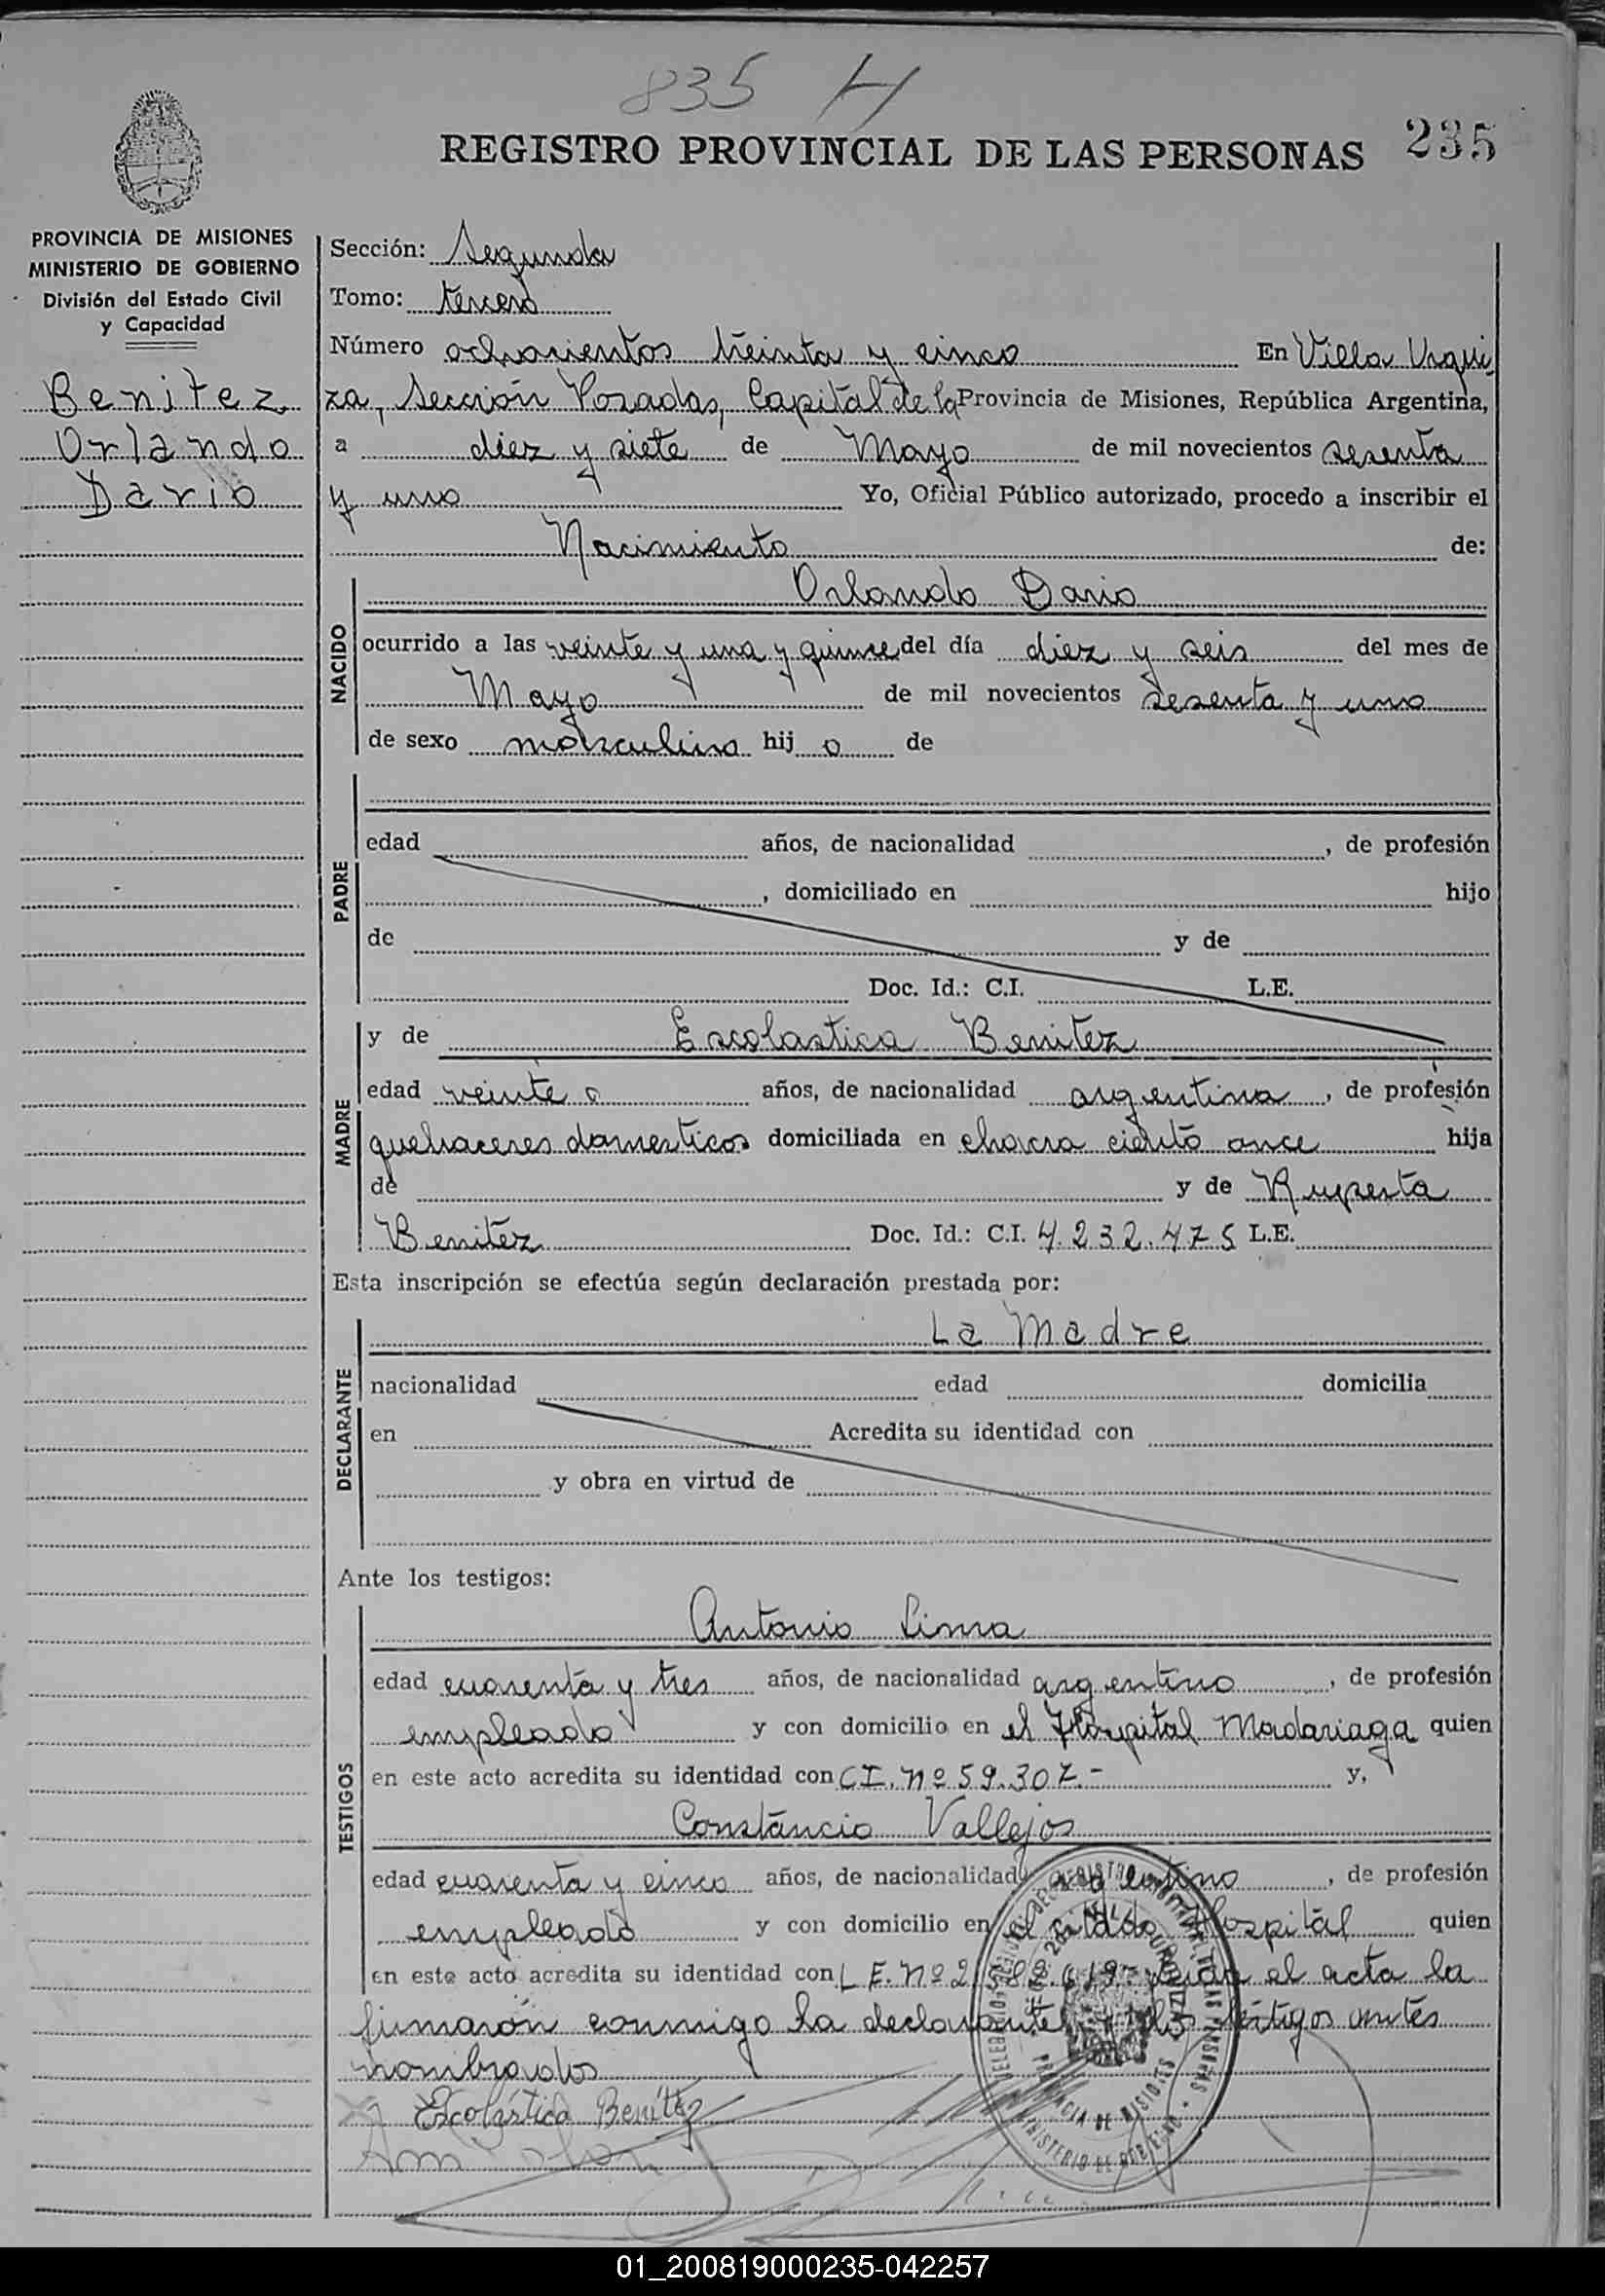 835 H
REGISTRO PROVINCIAL DE LAS PERSONAS 235
PROVINCIA DE MISIONES
MINISTERIO DE GOBIERNO
División del Estado Civil
y Capacidad
Benitez
Orlando
Dario
Sección: Segunda
Tomo: tercero
Número ochocientos treinta y cinco En Villa Urqui
za, Sección Posadas, Capital de la Provincia de Misiones, República Argentina,
a diez y siete de Mayo de mil novecientos sesenta
y uno Yo, Oficial Público autorizado, procedo a inscribir el
Nacimiento de:
NACIDO
Orlando Dario
ocurrido a las veinte y una y quince del día diez y seis del mes de
Mayo de mil novecientos sesenta y uno
de sexo masculino hij o de
PADRE
edad años, de nacionalidad , de profesión
, domiciliado en hijo
de y de
Doc. Id.: C.I. L.E.
MADRE
y de Escolastica Benitez
edad veinte años, de nacionalidad argentina, de profesión
quehaceres domesticos domiciliada en chacra ciento once hija
de y de Ruperta
Benitez Doc. Id.: C.I. 4.232.475 L.E.
Esta inscripción se efectúa según declaración prestada por:
DECLARANTE
La Madre
nacionalidad edad domicilia
en Acredita su identidad con
y obra en virtud de
Ante los testigos:
TESTIGOS
Antonio Lima
edad cuarenta y tres años, de nacionalidad argentino, de profesión
empleado y con domicilio en el Hospital Madariaga quien
en este acto acredita su identidad con CI. Nº 59.307.- y,
Constancio Vallejos
edad cuarenta y cinco años, de nacionalidad argentino, de profesión
empleado y con domicilio en el citado Hospital quien
en este acto acredita su identidad con L E. Nº el acta la
firmarón conmigo la declarante y los testigos antes
nombrados
Escolástica Benítez
PROVINCIA DE MISIONES
MINISTERIO DE GOBIERNO
01_200819000235-042257